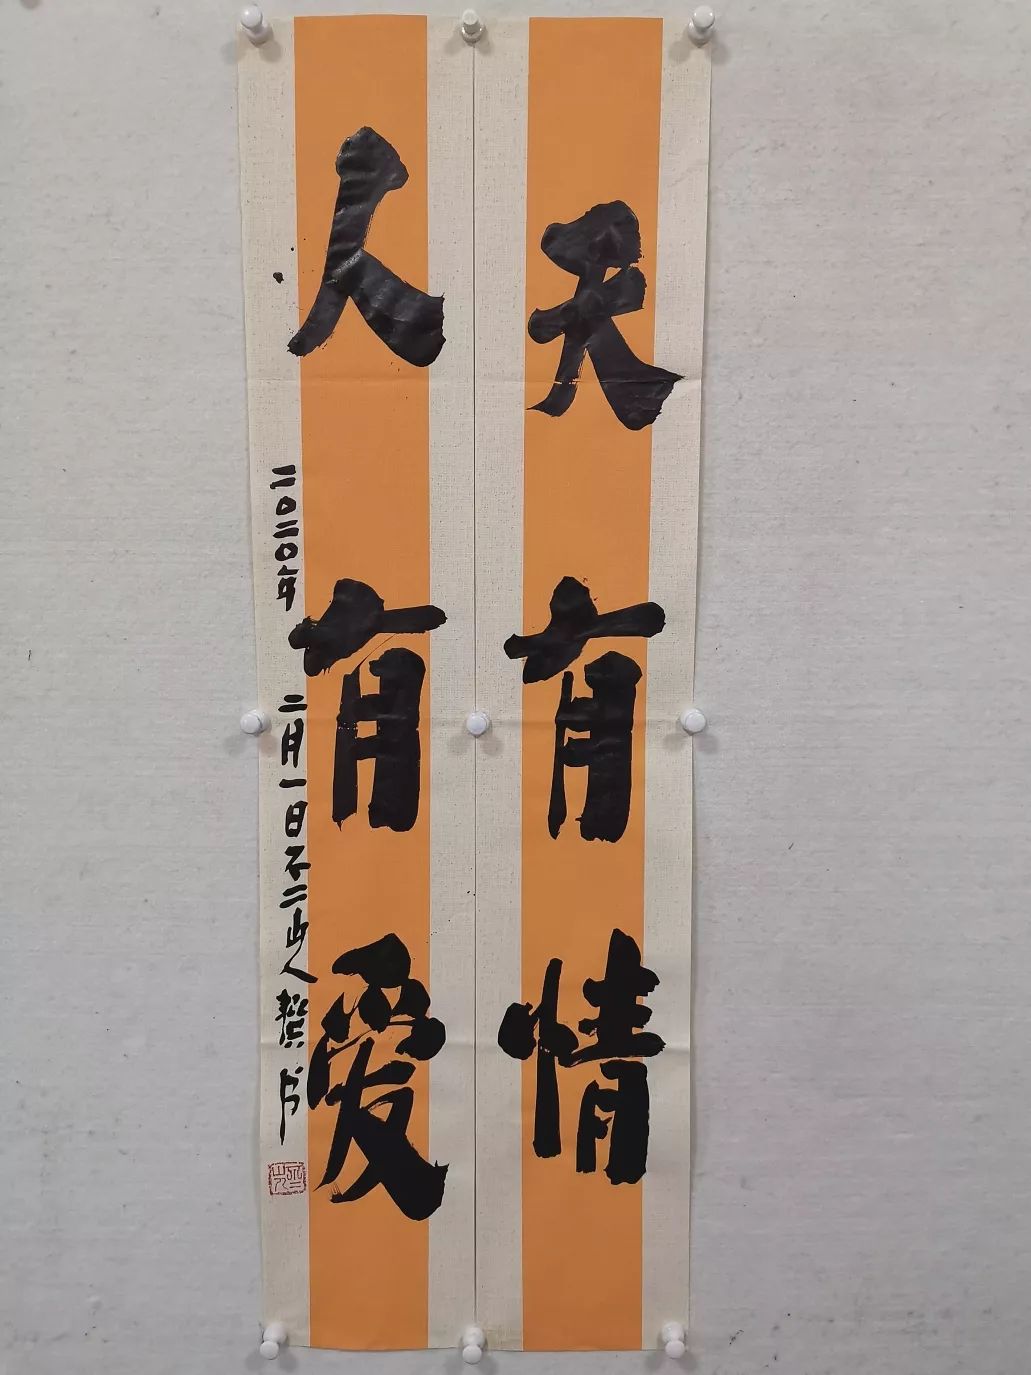 天有情
人有爱
二〇二〇年 二月一日不二山人 书